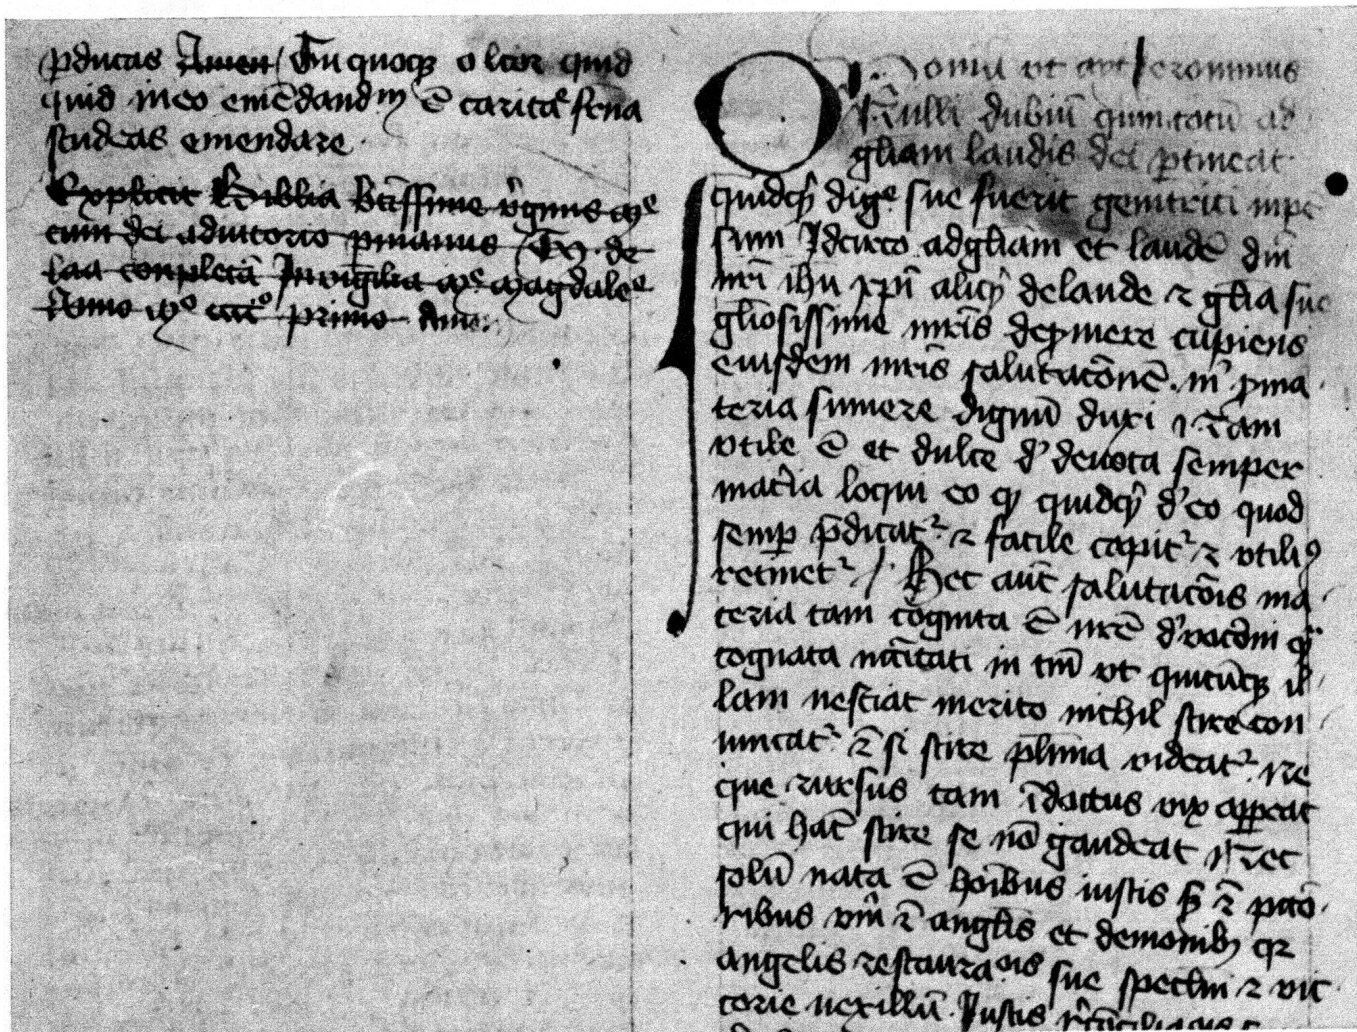 p̄ducas Amen / Tu quoqꝫ o lc̄or quid
quid in eo emēdandū ē caritate
studeas emendare.
Explicit Biblia btīssime v̄gīnis
cum dei adiutorio de
laa conpleta In vigilia magdalee
Anno primo Amen
Qoniā vt ait Jeronimus
Nulli dubiū quin totū ad
gl̄iam laudis dei p̄tineat
quidqͥd digē sue fuerit genitrici inpē
sum Idcirco ad gl̄iam et laudē dn̄i
nr̄i ih̄u xp̄i aliqͥd de laude ⁊ gl̄ia sue
gl̄iosissime mr̄is dep̄mere cupiens
eiusdem mr̄is salutacōnē. mͥ p̄ ma
teria sumere dignū duxi Nam
vtile ē et dulce dˀ deuota semper
mat̄ia loqui eo qꝫ quidqͥd dˀ eo quod
semp̄ p̄dicatᷣ ⁊ facile capitᷣ ⁊ utiliꝰ
retinetᷣ / Hec aut̄ salutacōis ma
teria tam cognita ē
cognata in tm̄ vt quicūqꝫ il
lam nesciat merito nichil scire con
uincatᷣ si scire pl̄ima videatᷣ Ne
que rursus tam īdoctus vix appeat
qui hanc scire se nō gaudeat Nec
solū nata ē hoībus iustis sꝫ pctō
ribus vm̄ angl̄is et demonibꝫ qꝛ
angelis restauracōis sue specl̄m ⁊ vic
torie vexillū Justis